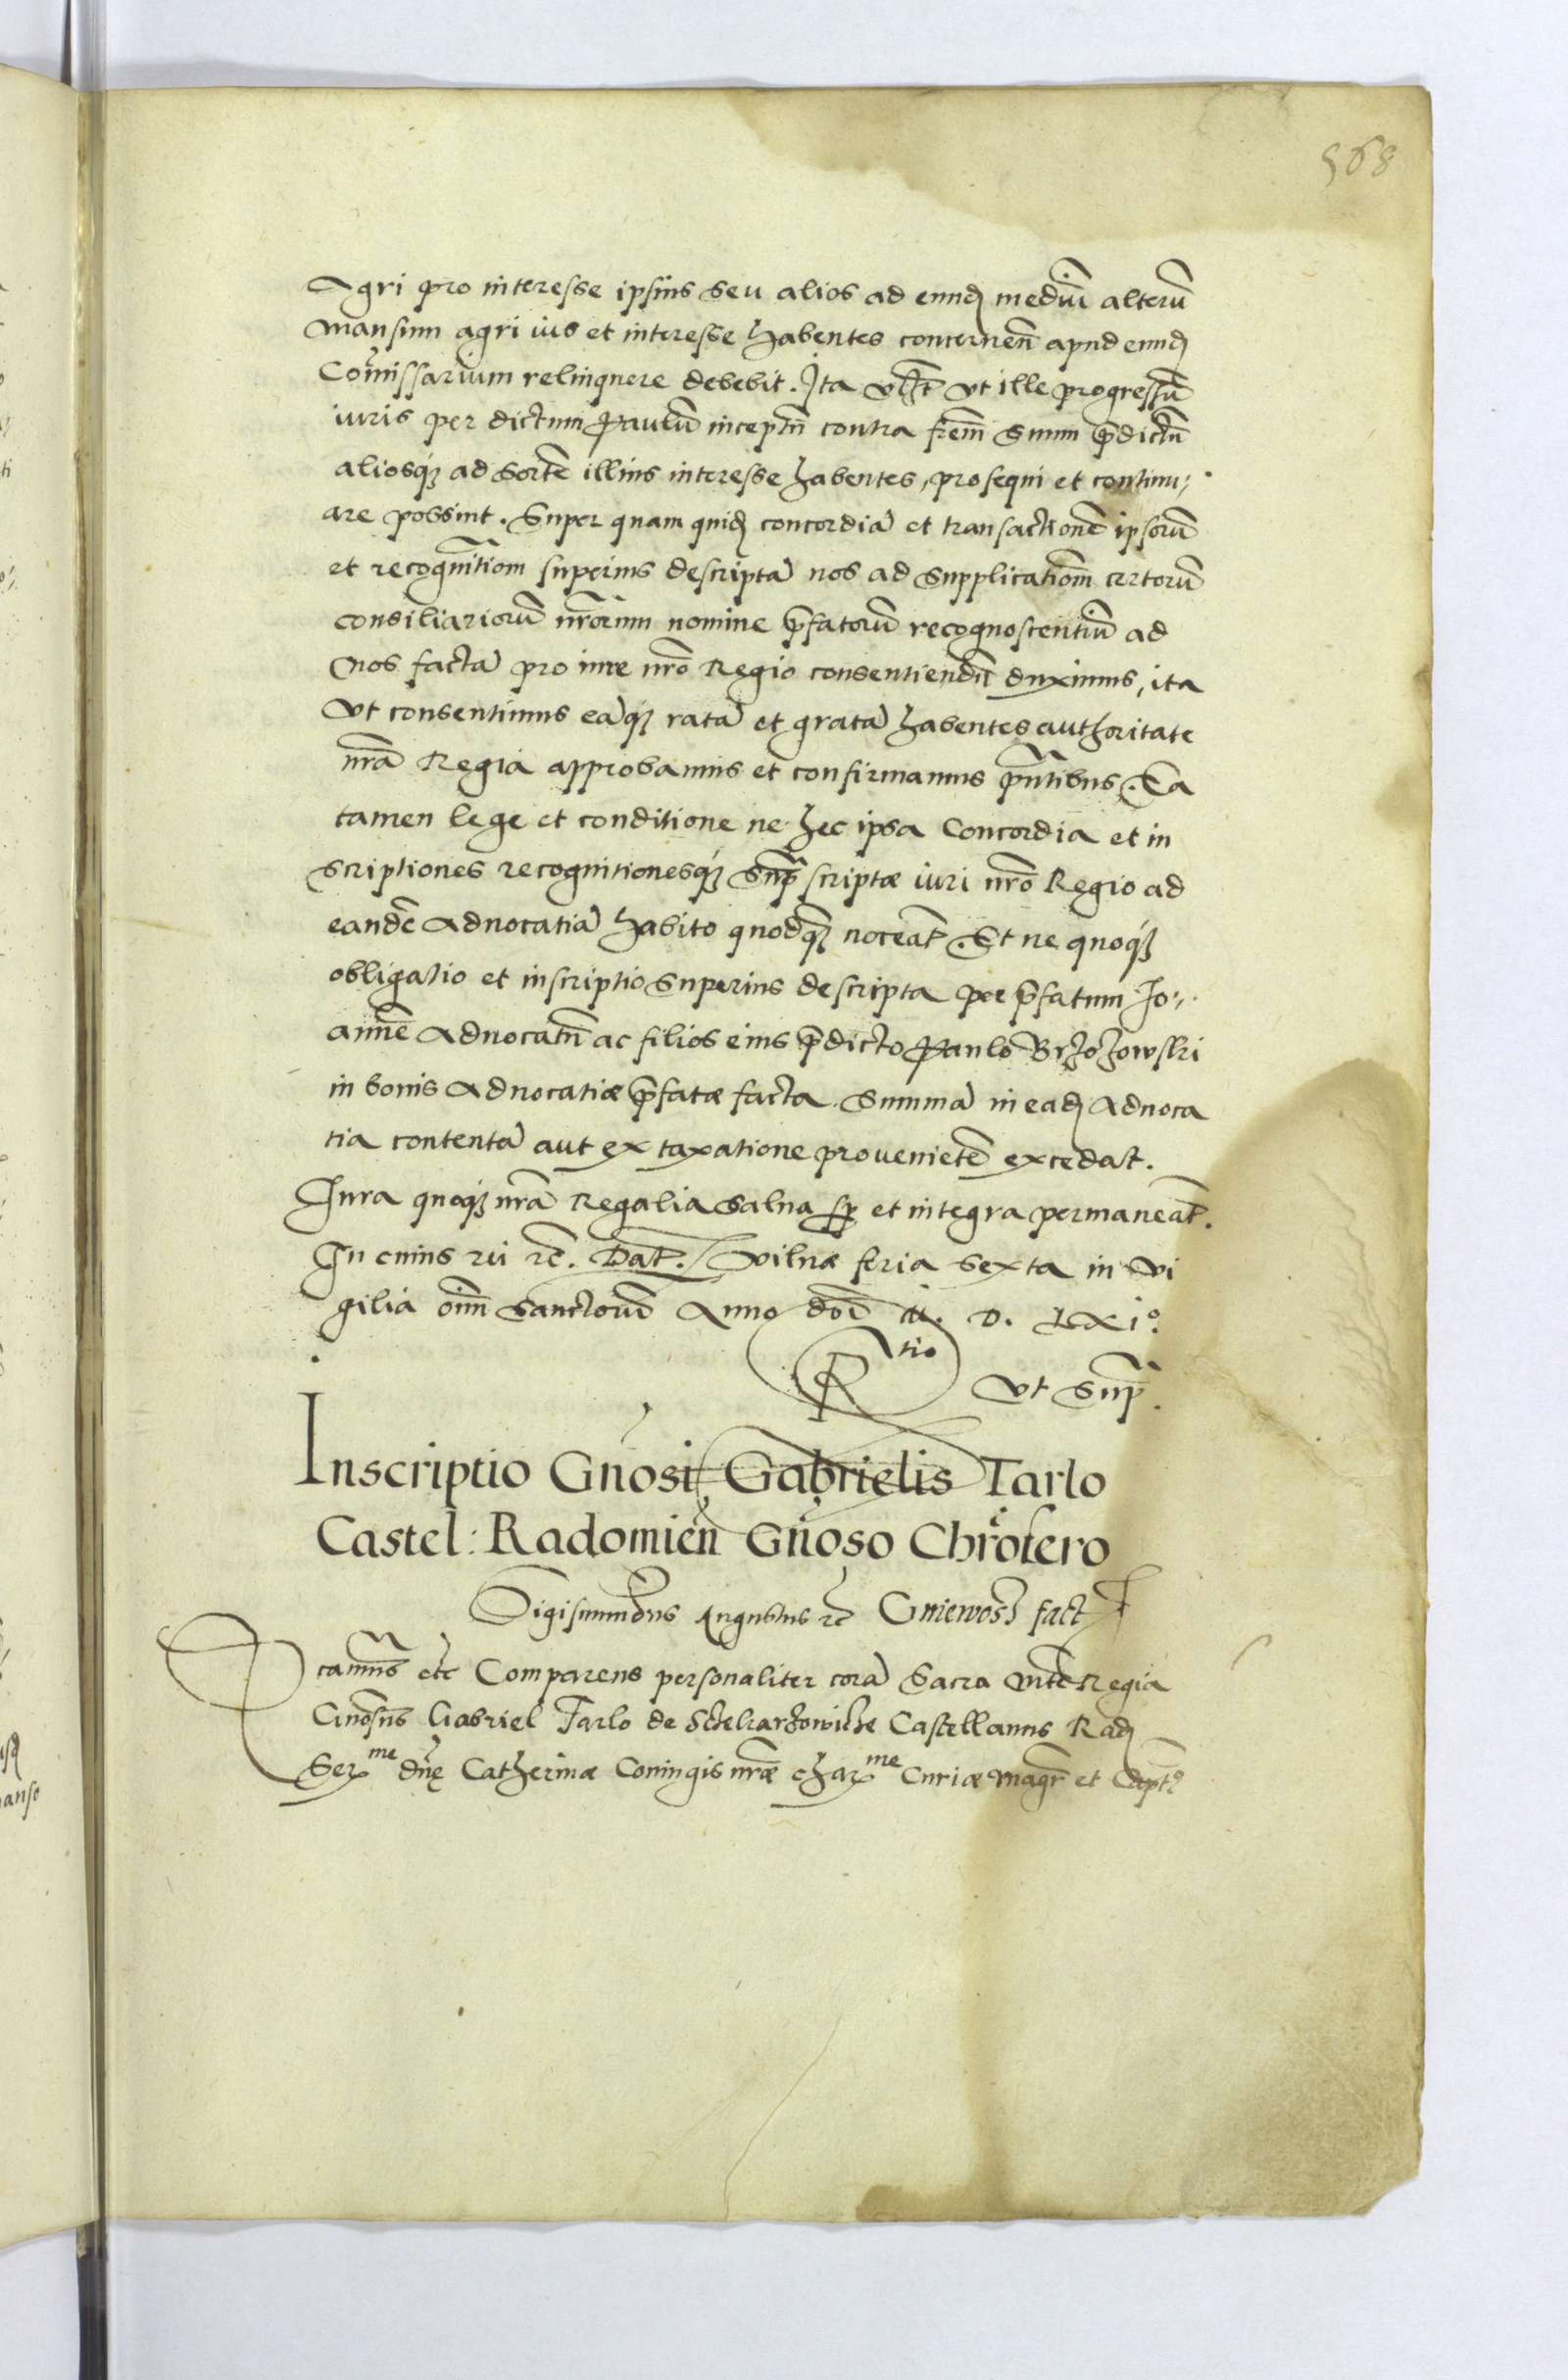 568
Agri pro interesse ipsius seu alios ad eund mediũ alterũ
mansum agri ius et interesse habentes concernen̄ apud eund
Com̃issarium relinquere debebit. Ita ut ille progressũ
iuris per dictum Paulũ inceptũ contra frēm suum p̄dictũ
aliosq; ad sortē illius interesse habentes, prosequi et continu=
are possint. Super quam quid concordiã et transactionē ipsorũ
et recognitiom̃ superius descriptã nos ad supplicatiom̃ certorũ
consiliariorũ nr̃orum nomine p̄fatorũ recognoscentiũ ad
nos factã pro iure nr̃o Regio consentiendũ duximus, ita
ut consentimus eãq; ratã et gratã habentes authoritate
nr̃a Regia approbamus et confirmamus p̄ntibus. Ea
tamen lege et conditione ne hec ipsa Concordia et in
scriptiones recognitionesq; sup̃ scriptæ iuri nr̃o Regio ad
eandē Advocatiã habito quodq; noceat̃. Et ne quoq;
obligatio et inscriptio superius descripta per p̄fatum Jo=
annē Advocatũ ac filios eius p̄dicto Paulo Brzozowski
in bonis Advocatiæ p̄fatæ facta summã in ead Advoca
tia contentã aut ex taxatione provenietē excedat.
Jura quoq; nr̃a Regalia salva sp̃ et integra permaneat̃.
In cuius rei rc̄. Dat̃. Vilnæ feria sexta in vi
gilia oĩm Sanctorũ Anno doĩ M. D. LXIº.
Rtio ut sup̃.
Inscriptio Gn̄osi Gabrielis Tarlo
Castel: Radomien̄ Gn̄oso Chr̃ofero
Sigismundus Augustus rc̄ Gniewosz fact
camus etc̄ Comparens personaliter corã Sacra Mte Regia
Gn̄osus Gabriel Tarlo de Sczekarzowicze Castellanus Rad
Serme dn̄ę Catherinæ Coniugis nr̃æ charme Curiæ Magr̃ et Capt̃